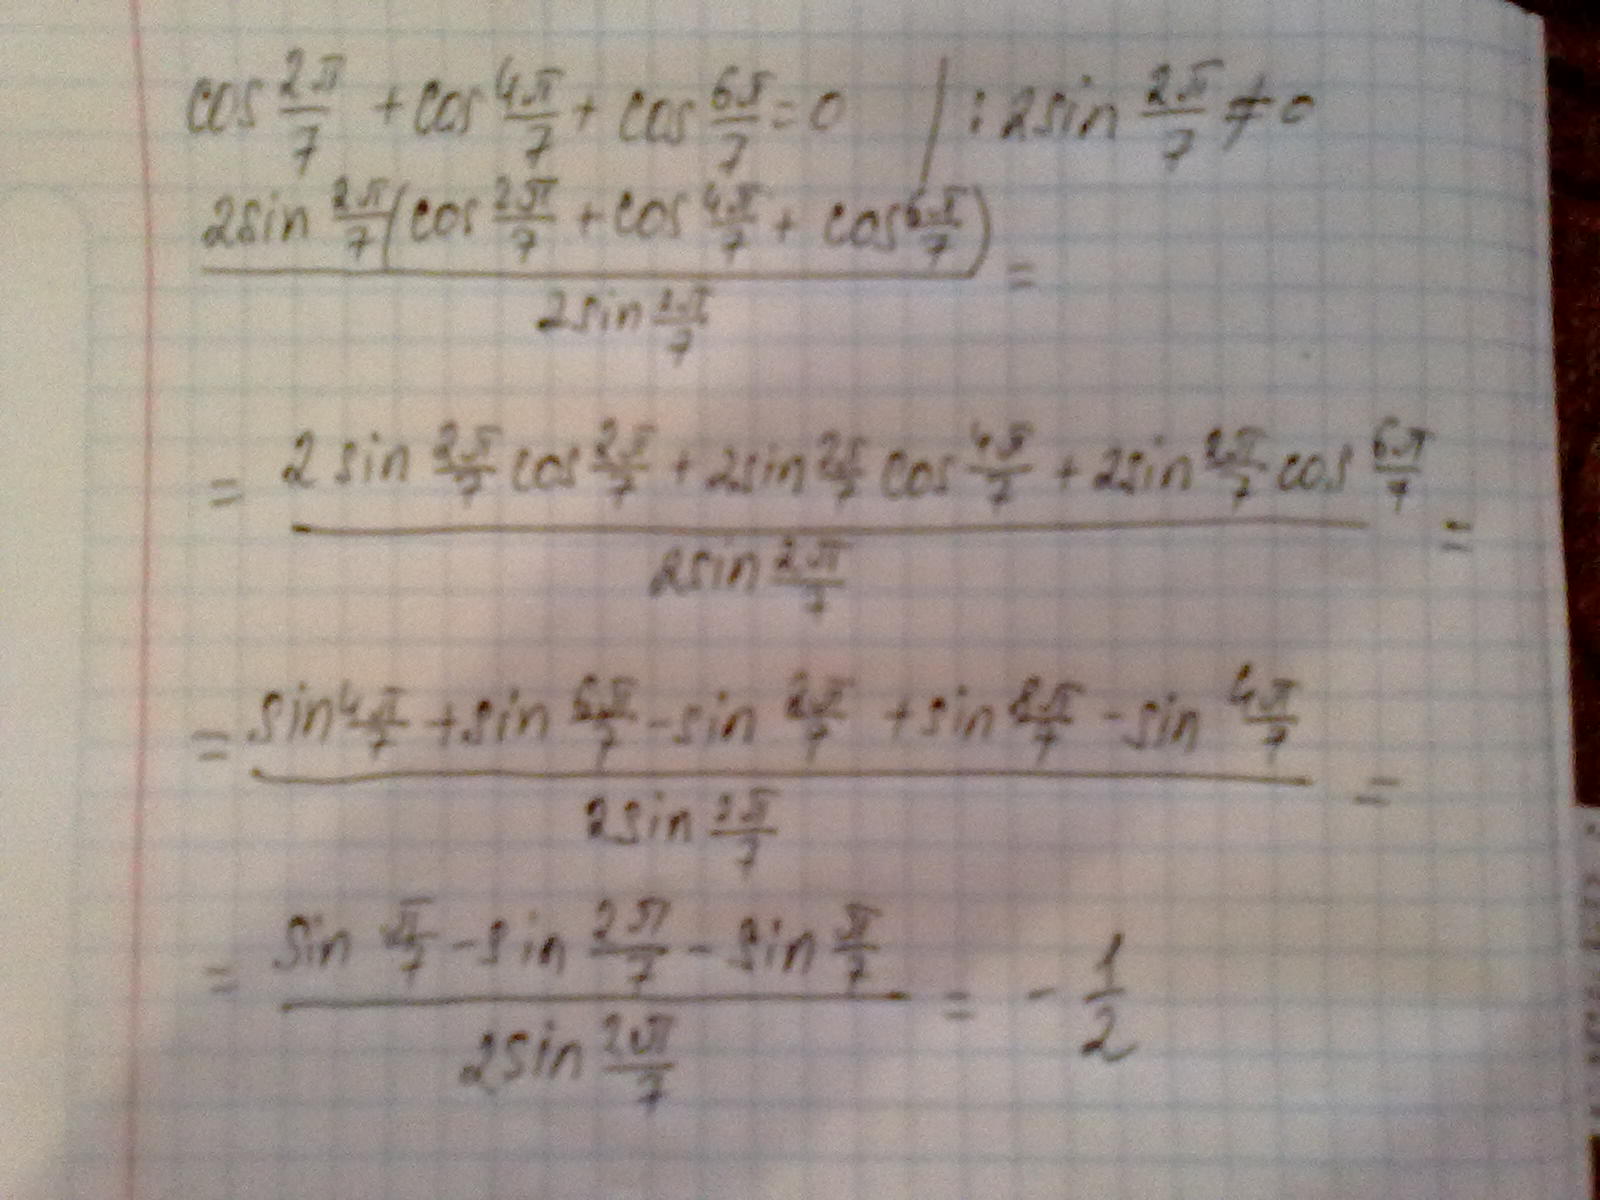 cos 2π/7 + cos 4π/7 + cos 6π/7 = 0 | : 2sin 2π/7 ≠ 0
2sin 2π/7 (cos 2π/7 + cos 4π/7 + cos 6π/7) / 2sin 2π/7 =
= 2sin 2π/7 cos 2π/7 + 2sin 2π/7 cos 4π/7 + 2sin 2π/7 cos 6π/7 / 2sin 2π/7 =
= sin 4π/7 + sin 6π/7 - sin 2π/7 + sin 8π/7 - sin 4π/7 / 2sin 2π/7 =
= sin π/7 - sin 2π/7 - sin π/7 / 2sin 2π/7 = - 1/2